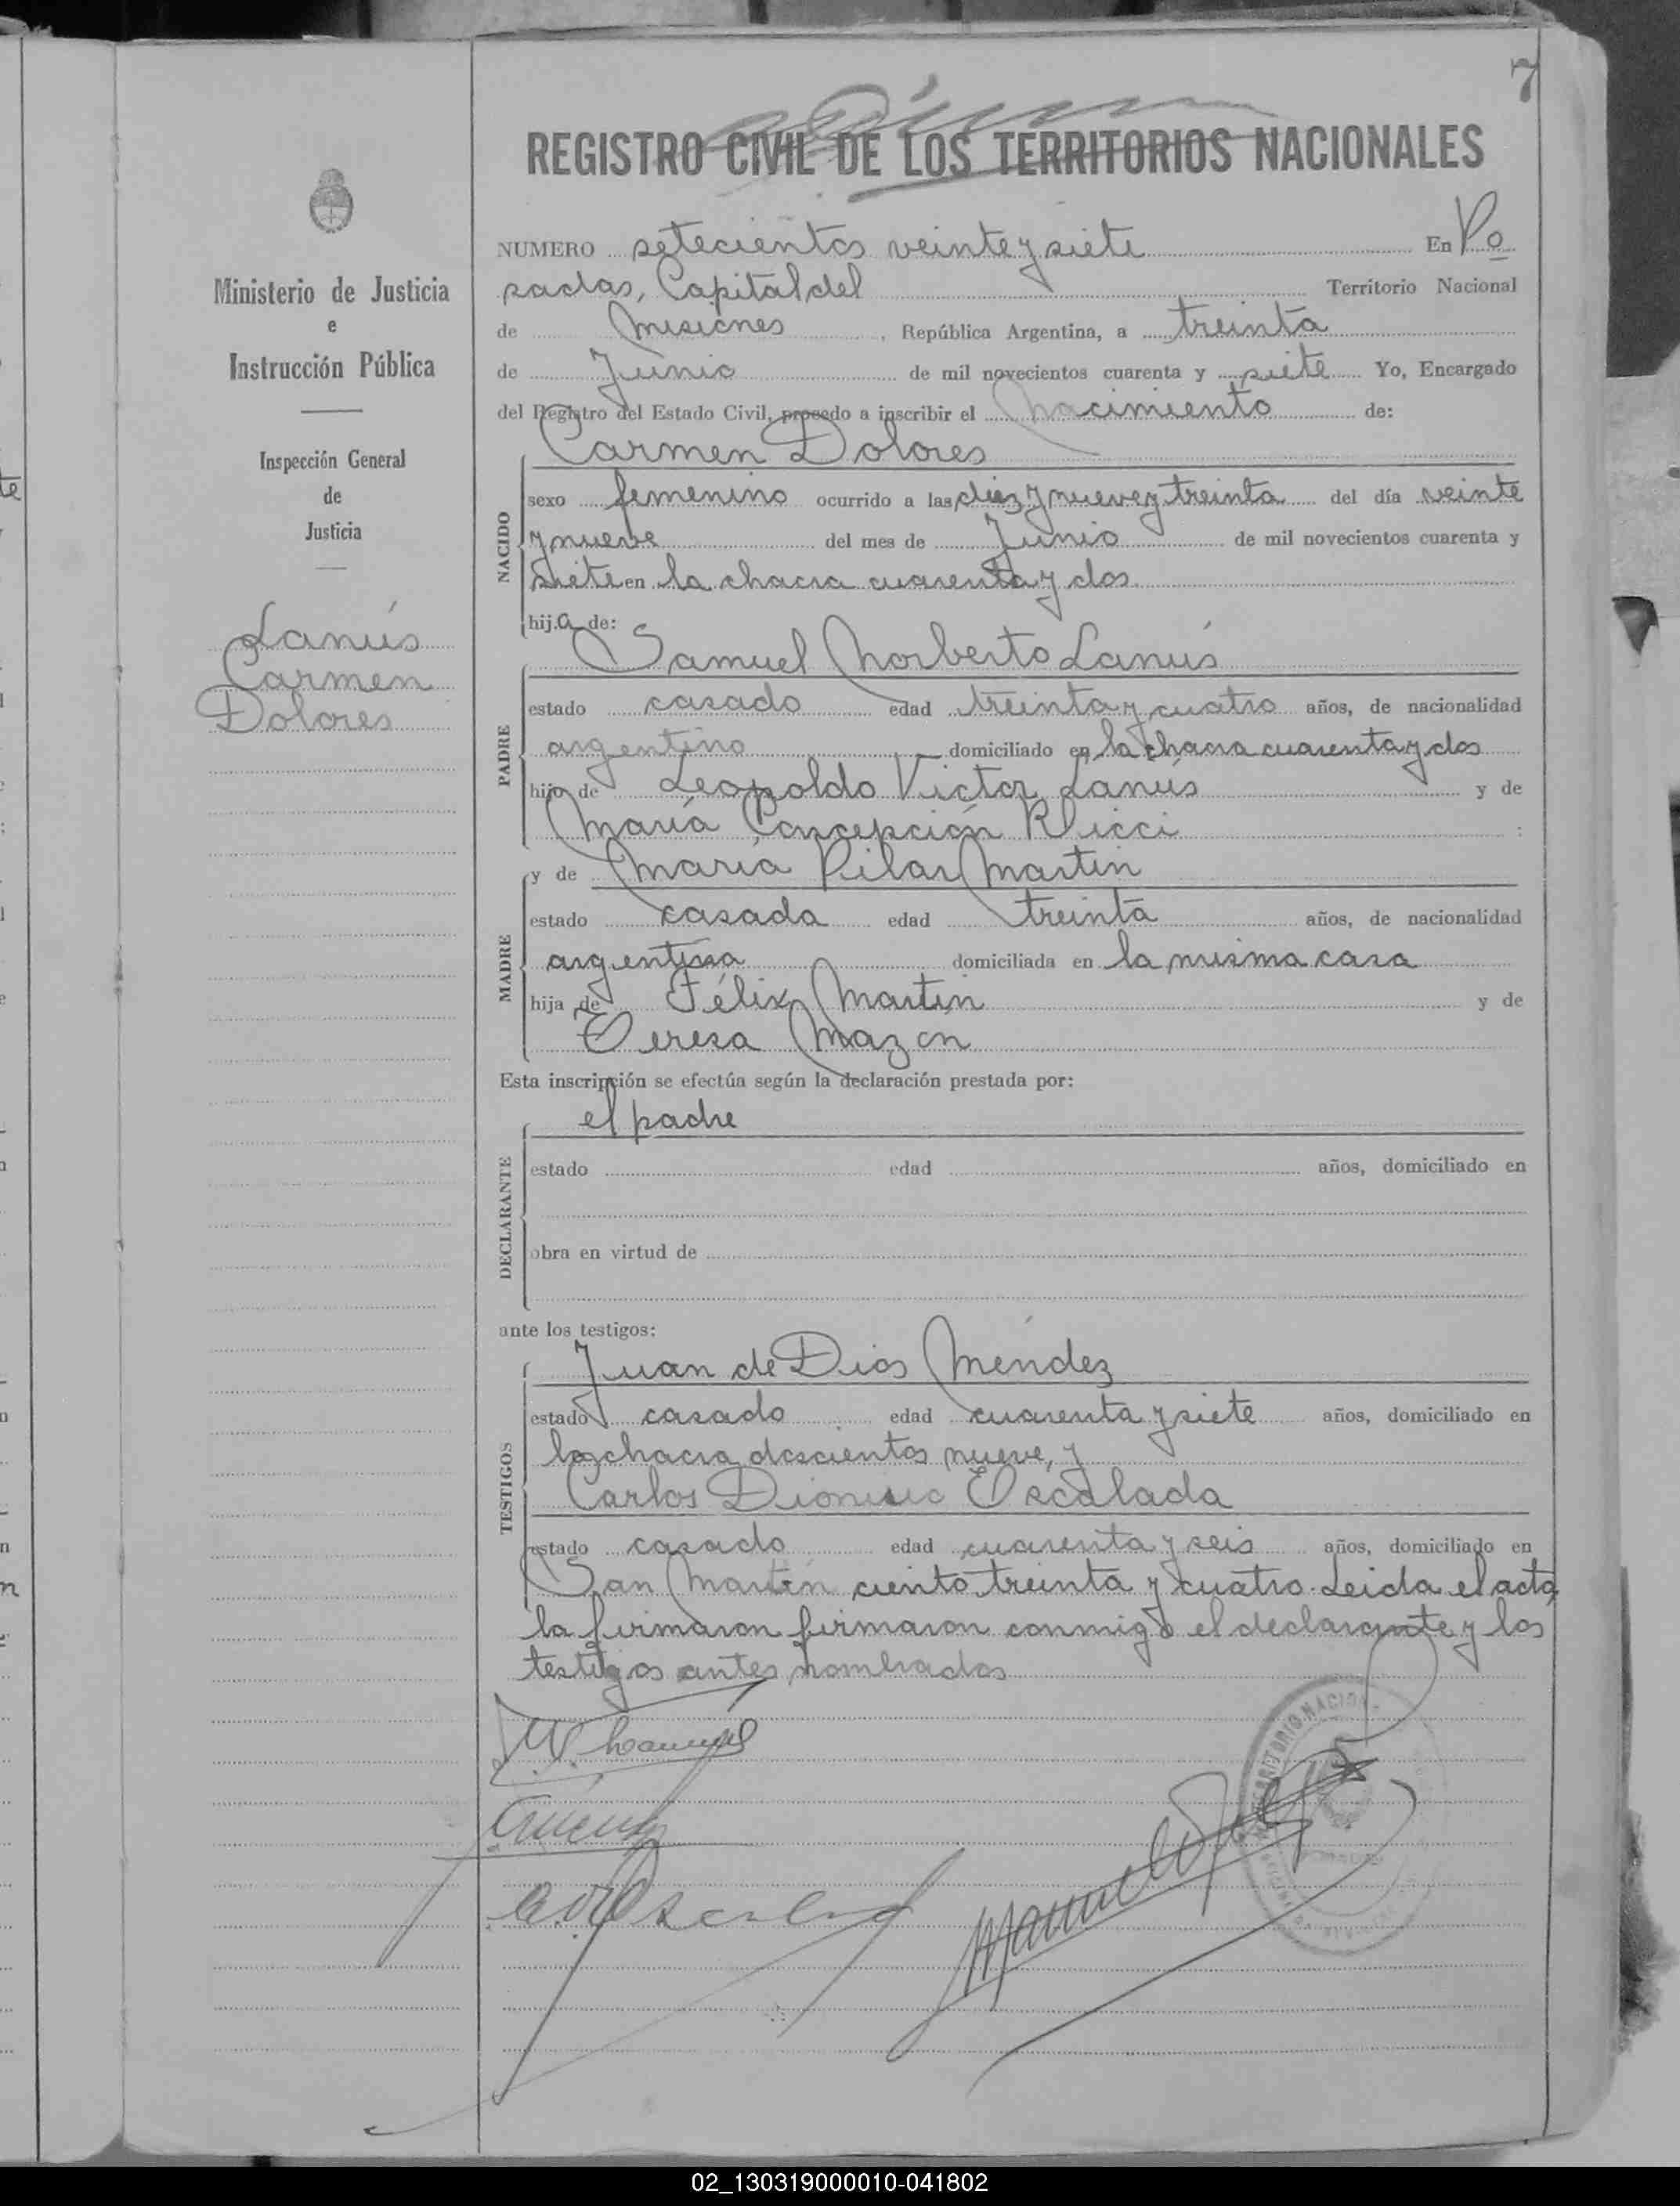 7
REGISTRO CIVIL DE LOS TERRITORIOS NACIONALES
Ministerio de Justicia
e
Instrucción Pública
Inspección General
de
Justicia
Lanús
Carmen
Dolores
NUMERO setecientos veinte y siete En Po
sadas, Capital del Territorio Nacional
de Misiones, República Argentina, a treinta
de Junio de mil novecientos cuarenta y siete Yo, Encargado
del Registro del Estado Civil, procedo a inscribir el Nacimiento de:
Carmen Dolores
NACIDO
sexo femenino ocurrido a las diez y nueve y treinta del día veinte
y nueve del mes de Junio de mil novecientos cuarenta y
siete en la chacra cuarenta y dos
hija de:
Samuel Norberto Lanús
PADRE
estado casado edad treinta y cuatro años, de nacionalidad
argentino domiciliado en la chacra cuarenta y dos
hijo de Leopoldo Victor Lanús y de
María Concepción Ricci :
MADRE
y de María Pilar Martin
estado casada edad treinta años, de nacionalidad
argentina domiciliada en la misma casa
hija de Félix Martin y de
Teresa Mazon
Esta inscripción se efectúa según la declaración prestada por:
el padre
DECLARANTE
estado edad años, domiciliado en
obra en virtud de
ante los testigos:
TESTIGOS
Juan de Dios Méndez
estado casado edad cuarenta y siete años, domiciliado en
la chacra doscientos nueve, y
Carlos Dionisio Escalada
estado casado edad cuarenta y seis años, domiciliado en
San Martín ciento treinta y cuatro. Leida el acta,
la firmaron firmaron conmigo el declarante y los
testigos antes nombrados
02_130319000010-041802